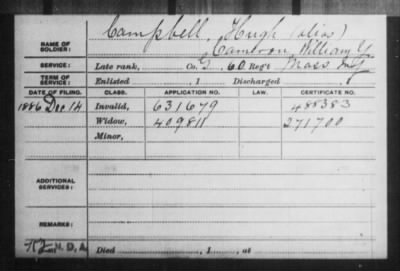 Campbell, Hugh (alias)
NAME OF SOLDIER: Cameron, William G
SERVICE: Late rank, Co. G. 60 Reg't Mass Inf
TERM OF SERVICE: Enlisted , 1 Discharged , 1
DATE OF FILING. CLASS. APPLICATION NO. LAW. CERTIFICATE NO.
1886 Dec 14 Invalid, 631679 488383
Widow, 409811 271700
Minor,
ADDITIONAL SERVICES:
REMARKS:
N.D.A. Died , 1 , at